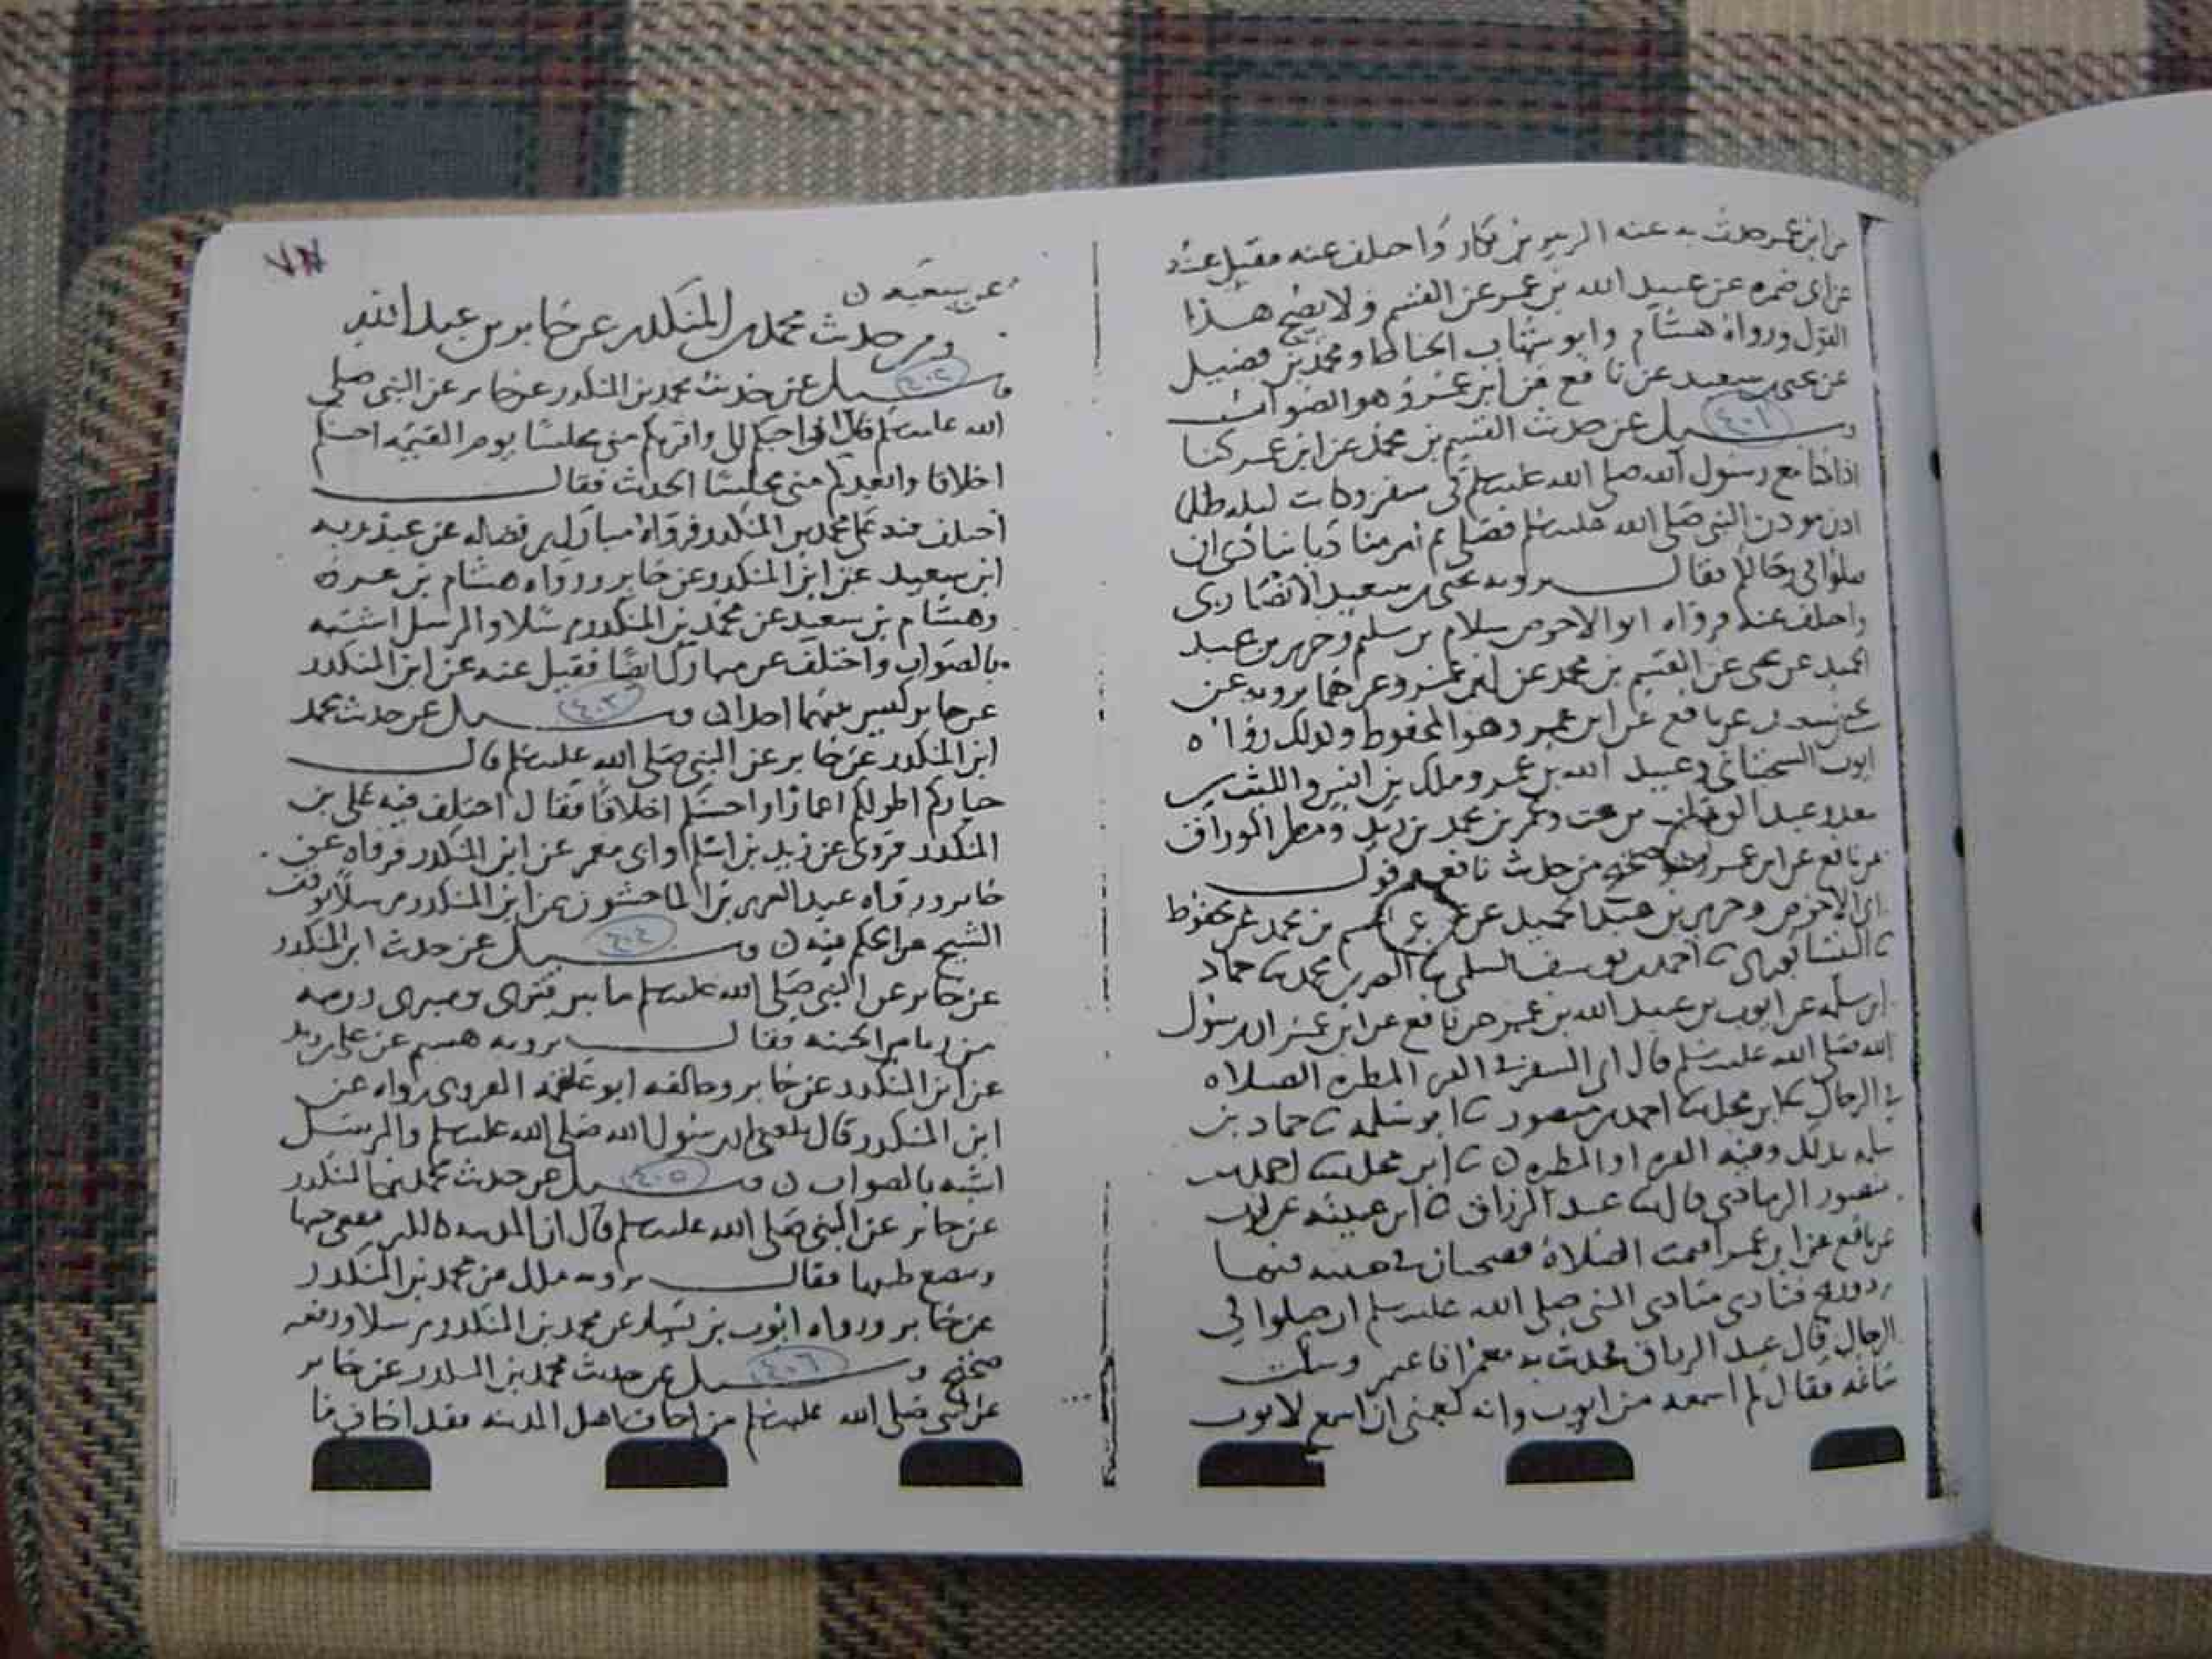 عن ابن عمر حدث به عنه الزبير بن بكار واختلف عنه فقيل عنه
عن أبي ضمرة عن عبيد الله بن عمر عن القسم ولا يصح هذا
القول ورواه هشام وابو شهاب الحناط ومحمد بن فضيل
عن يحيى بن سعيد عن نافع عن ابن عمر وهو الصواب
٤٠١ وسئل عن حديث القسم بن محمد عن ابن عمر كنا
اذا كنا مع رسول الله صلى الله عليه وسلم في سفر وكانت ليلة
اذن موذن النبي صلى الله عليه وسلم فصلى ثم امر مناديا ينادي ان
صلوا في رحالكم فقال يرويه يحيى بن سعيد الانصاري
واختلف عنه فرواه ابو الاحوص سلام بن سليم وجرير بن عبد
الحميد عن يحيى عن القسم بن محمد عن ابن عمر وغيرهما يرويه عن
يحيى بن سعيد عن نافع عن ابن عمر وهو المحفوظ وكذلك رواه
ايوب السختياني وعبيد الله بن عمر وملك بن انس والليث بن
سعد وعمر بن محمد بن زيد ومطر الوراق
عن نافع عن ابن عمر صحيح من حديث نافع وقول
ابي الاحوص وجرير بن عبد الحميد عن القسم بن محمد غير محفوظ
ثنا النيسابوري ثنا احمد بن يوسف السلمي ثنا النضر بن محمد ثنا حماد
ابن سلمة عن ايوب بن عبيد الله بن عمر عن نافع عن ابن عمر ان رسول
الله صلى الله عليه وسلم قال المطره الصلاه
في الرحال ثنا ابن مخلد ثنا احمد بن منصور ثنا ابو سلمة ثنا حماد بن
سلمه بذلك وفيه القره او المطره ن ثنا ابن مخلد ثنا احمد بن
منصور الرمادي قال ثنا عبد الرزاق ثنا ابن عيينه عن ايوب
عن نافع عن ابن عمر اقيمت الصلاة بضجنان في
وريح فنادى منادي النبي صلى الله عليه وسلم ان صلوا في
الرحال قال عبد الرزاق فحدثت به معمرا
فقال لم اسمعه من ايوب وانه ليعجبني ان اسمع لايوب
٧٣
عن سعيد ن
ومن حديث محمد بن المنكدر عن جابر بن عبد الله
٤٠٢ وسئل عن حديث محمد بن المنكدر عن جابر عن النبي صلى
الله عليه وسلم قال ان احبكم الي واقربكم مني مجلسا يوم القيمه احسنكم
اخلاقا وابعدكم مني مجلسا الحديث فقال
اختلف فيه على محمد بن المنكدر فرواه مبارك بن فضاله عن عبد ربه
ابن سعيد عن ابن المنكدر عن جابر ورواه هشام بن عروة
وهشام بن سعيد عن محمد بن المنكدر مرسلا والمرسل اشبه
بالصواب واختلف عن مبارك ايضا فقيل عنه عن ابن المنكدر
عن جابر ليس بينهما احد ن ٤٠٣ وسئل عن حديث محمد
ابن المنكدر عن جابر عن النبي صلى الله عليه وسلم قال
خياركم اطولكم اعمارا واحسنكم اخلاقا فقال اختلف فيه على بن
المنكدر فروي عن زيد بن اسلم وابي معمر عن ابن المنكدر فرواه عن
جابر ورواه عبد العزيز بن الماجشون عن ابن المنكدر مرسلا توقف
الشيخ عن الحكم فيه ن ٤٠٤ وسئل عن حديث ابن المنكدر
عن جابر عن النبي صلى الله عليه وسلم ما بين قبري ومنبري روضه
من رياض الجنه فقال يرويه هشيم عن علي بن زيد
عن ابن المنكدر عن جابر وخالفه ابو علقمه الفروي رواه عن
ابن المنكدر قال بلغني ان رسول الله صلى الله عليه وسلم والمرسل
اشبه بالصواب ن ٤٠٥ وسئل عن حديث محمد بن المنكدر
عن جابر عن النبي صلى الله عليه وسلم قال ان المدينه كالكير تنفي خبثها
وتنصع طيبها فقال يرويه ملك عن محمد بن المنكدر
عن جابر ورواه ايوب بن سيار عن محمد بن المنكدر مرسلا ورفعه
صحيح ٤٠٦ وسئل عن حديث محمد بن المنكدر عن جابر
عن النبي صلى الله عليه وسلم من اخاف اهل المدينه فقد اخاف ما